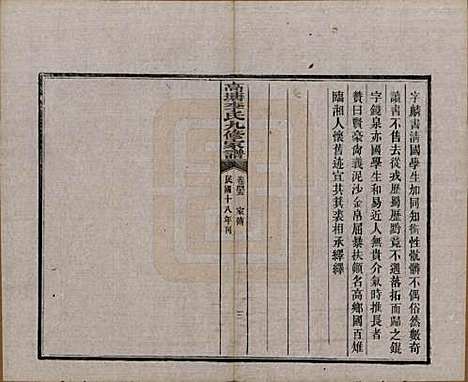 字麟書清國學生加同知銜性骯髒不偶俗然數奇
讀書不售去從戎歷歷黔竟不遇落拓而歸之鋐
字鏡泉亦國學生和易近人無貴介氣時推長者
贊曰賢豪尚義泥沙金帛扈暴扶顛名高鄉國百雉
臨湘人懷舊迹宜其其裘相承繹繹
高塘李氏九修家譜
卷 家傳 三
民國十八年刊